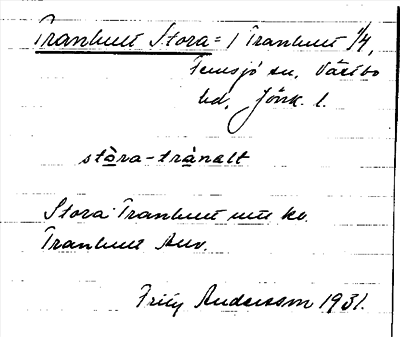 Tranhult Stora = 1 Tranhult 1/4,
Femsjö sn, Västbo
hd, Jönk. l.
stòra-trànalt
Stora Tranhult kv.
Tranhult Auv.
Fritz Andersson 1931.